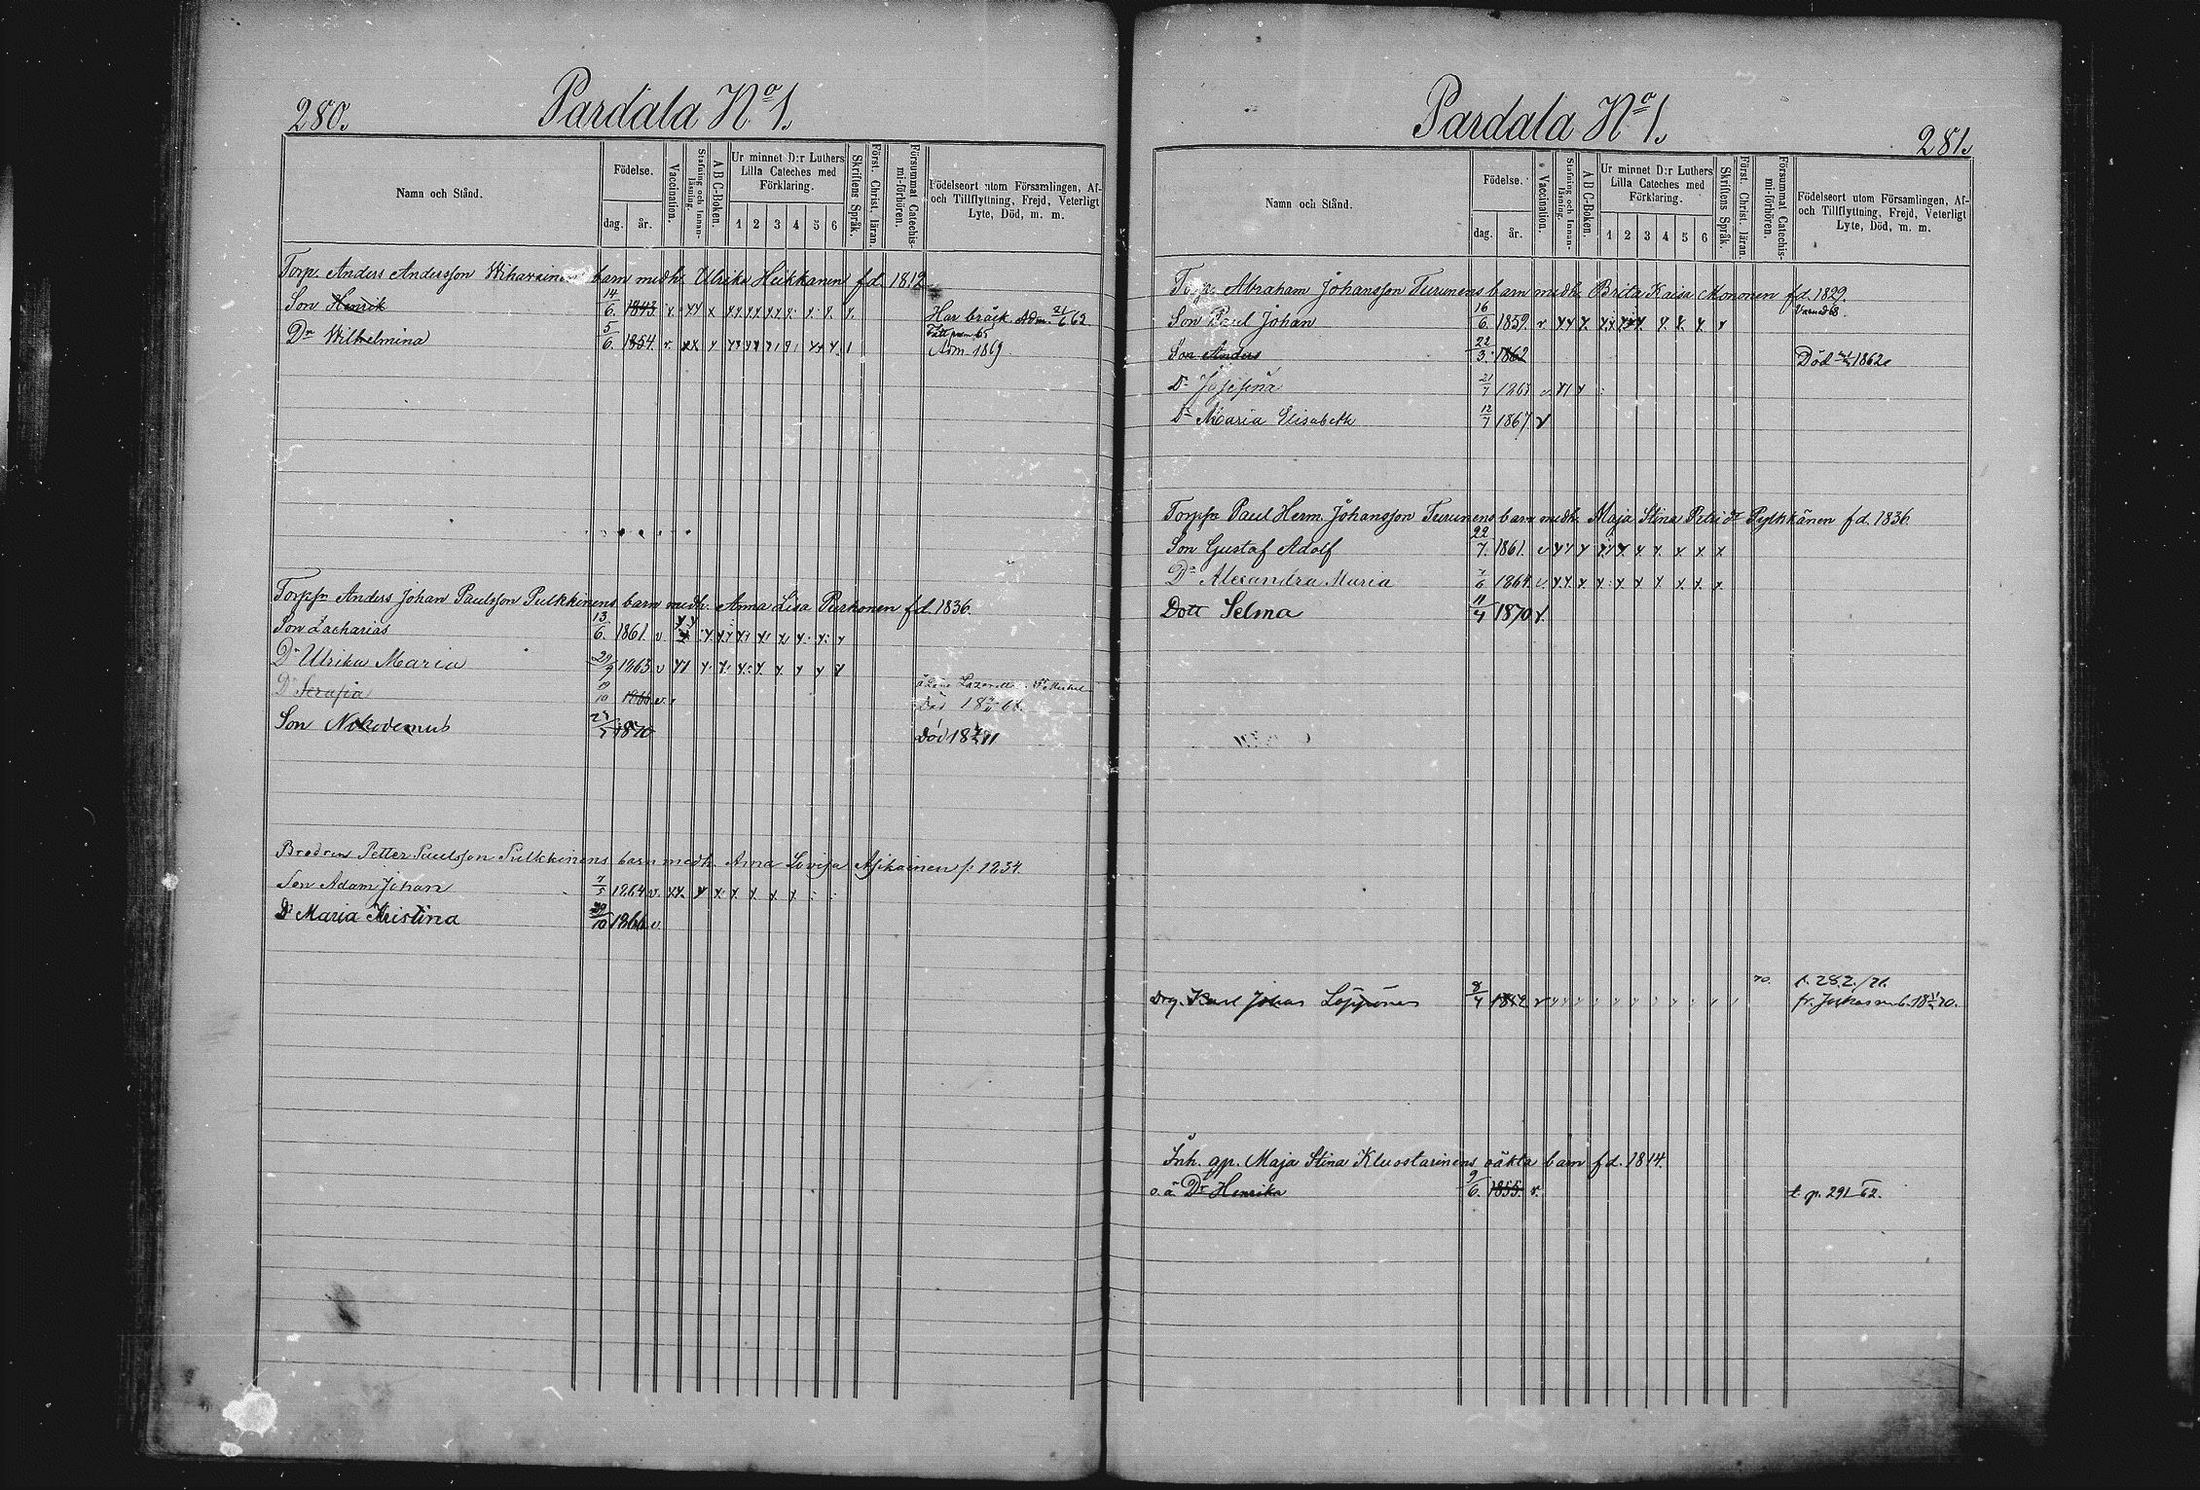 280.
Pardala No 1.
Namn och Stånd.
Födelse.
dag.
år.
Vaccination.
Stafning och Innanläsning.
A B C-Boken.
Ur minnet D:r Luthers Lilla Cateches med Förklaring.
1 2 3 4 5 6
Skriftens Språk.
Först. Christ. läran.
Försummat Catechismi-förhören.
Födelseort utom Församlingen, Af- och Tillflyttning, Frejd, Veterligt Lyte, Död, m. m.
Torp. Anders Andersson Wihavainens barn medh. Ulrika Heikkanen f d. 1812
Son Henrik 14/6. 1843. Har bråck Adm. 21/6 62
Dr Wilhelmina 5/6. 1854. v. Adm 1869.
Torpr Anders Johan Paulsson Pulkkinens barn medh. Anna Lisa Parkonen f d. 1836.
Son Zacharias 13/6. 1861. v
Dr Ulrika Maria 29/9 1863. v
Dr Serafia 19/10 1866 v. Död
Son Nikodemus 1870 Död 18 71
Brodren Petter Paulsson Pulkkinens barn medh. Anna Lovisa Asikainen f: 1834.
Son Adam Johan 7/5 1864 v.
Dr Maria Kristina 29/10 1866 v.
Pardala No 1.
281.
Namn och Stånd.
Födelse.
dag.
år.
Vaccination.
Stafning och Innanläsning.
A B C-Boken.
Ur minnet D:r Luthers Lilla Cateches med Förklaring.
1 2 3 4 5 6
Skriftens Språk.
Först. Christ. läran.
Försummat Catechismi-förhören.
Födelseort utom Församlingen, Af- och Tillflyttning, Frejd, Veterligt Lyte, Död, m. m.
Torpr Abraham Johansson Turunens barn medh. Brita Kaisa Mononen f d. 1829.
Son Paul Johan 16/6. 1859. v
Son Anders 22/3. 1862 Död 1862
Dr Josefina 21/7 1863 v
Dr Maria Elisabeth 12/7 1867. v
Torpr Paul Herm. Johansson Turunens barn medh. Maja Stina Petri dr Pylkkänen f d. 1836.
Son Gustaf Adolf 22/7. 1861. v
Dr Alexandra Maria 7/6 1864. v.
Dott Selma 11/4 1870 v.
70. f. 282./71.
Drg. Karl Johan Loppönen 8/4 1852 v
Inh. qp. Maja Stina Kluostarinens oäkta barn f d. 1814.
o.ä Dr Henrika 9/6. 1855. v. t. p. 291 62.